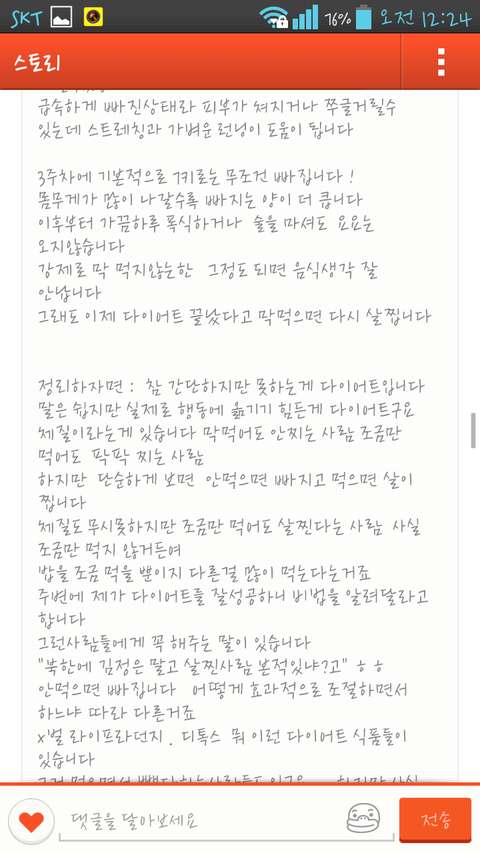 SKT 76% 오전 12:24
스토리
급속하게 빠진상태라 피부가 쳐지거나 쭈글거릴수
있는데 스트레칭과 가벼운 런닝이 도움이 됩니다
3주차에 기본적으로 7키로는 무조건 빠집니다 !
몸무게가 많이 나갈수록 빠지는 양이 더 큽니다
이후부터 가끔하루 폭식하거나 술을 마셔도 요요는
오지않습니다
강제로 막 먹지않는한 그정도 되면 음식생각 잘
안납니다
그래도 이제 다이어트 끝났다고 막먹으면 다시 살찝니다
정리하자면 : 참 간단하지만 못하는게 다이어트입니다
말은 쉽지만 실제로 행동에 옮기기 힘든게 다이어트구요
체질이라는게 있습니다 막먹어도 안찌는 사람 조금만
먹어도 팍팍 찌는 사람
하지만 단순하게 보면 안먹으면 빠지고 먹으면 살이
찝니다
체질도 무시못하지만 조금만 먹어도 살찐다는 사람 사실
조금만 먹지 않거든여
밥을 조금 먹을 뿐이지 다른걸 많이 먹는다는거죠
주변에 제가 다이어트를 잘성공하니 비법을 알려달라고
합니다
그런사람들에게 꼭 해주는 말이 있습니다
"북한에 김정은 말고 살찐사람 본적있냐?고" ㅎㅎ
안먹으면 빠집니다 어떻게 효과적으로 조절하면서
하느냐 따라 다른거죠
x벌 라이프라던지 . 디톡스 뭐 이런 다이어트 식품들이
있습니다
댓글을 달아보세요
전송